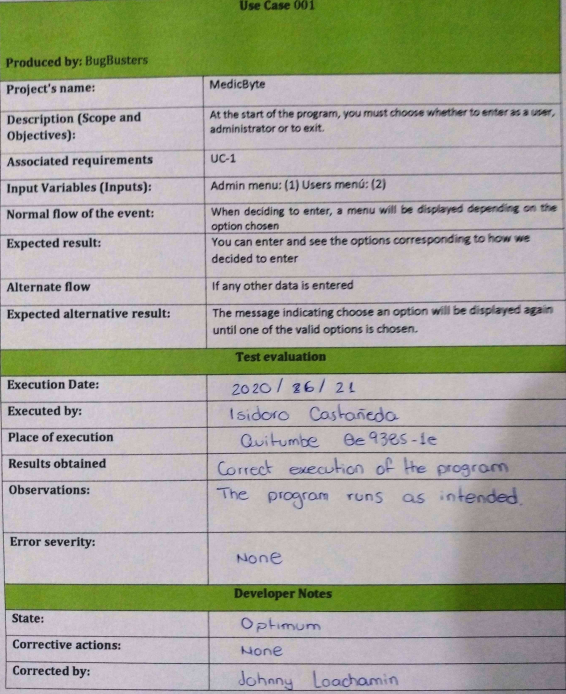 Use Case 001
Produced by: BugBusters
Project's name: MedicByte
Description (Scope and Objectives): At the start of the program, you must choose whether to enter as a user,
administrator or to exit.
Associated requirements UC-1
Input Variables (Inputs): Admin menu: (1) Users menú: (2)
Normal flow of the event: When deciding to enter, a menu will be displayed depending on the
option chosen
Expected result: You can enter and see the options corresponding to how we
decided to enter
Alternate flow If any other data is entered
Expected alternative result: The message indicating choose an option will be displayed again
until one of the valid options is chosen.
Test evaluation
Execution Date: 2020 / / 21
Executed by: Isidoro Castañeda
Place of execution Quitumbe
Results obtained Correct execution of the program
Observations: The program runs as intended.
Error severity: None
Developer Notes
State: Optimum
Corrective actions: None
Corrected by: Johnny Loachamin